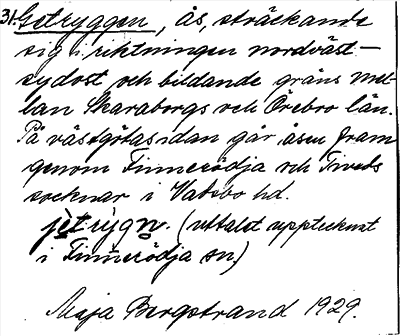 31. Getryggen, ås, sträckande
sig i riktningen nordväst-
sydost och bildande gräns mel-
lan Skaraborgs och Örebro län.
På västgötasidan går åsen fram
genom Finnerödja och Tiveds
socknar i Vadsbo hd.
jètrỳgn. (uttalet upptecknat
i Finnerödja sn)
Maja Bergstrand 1929.